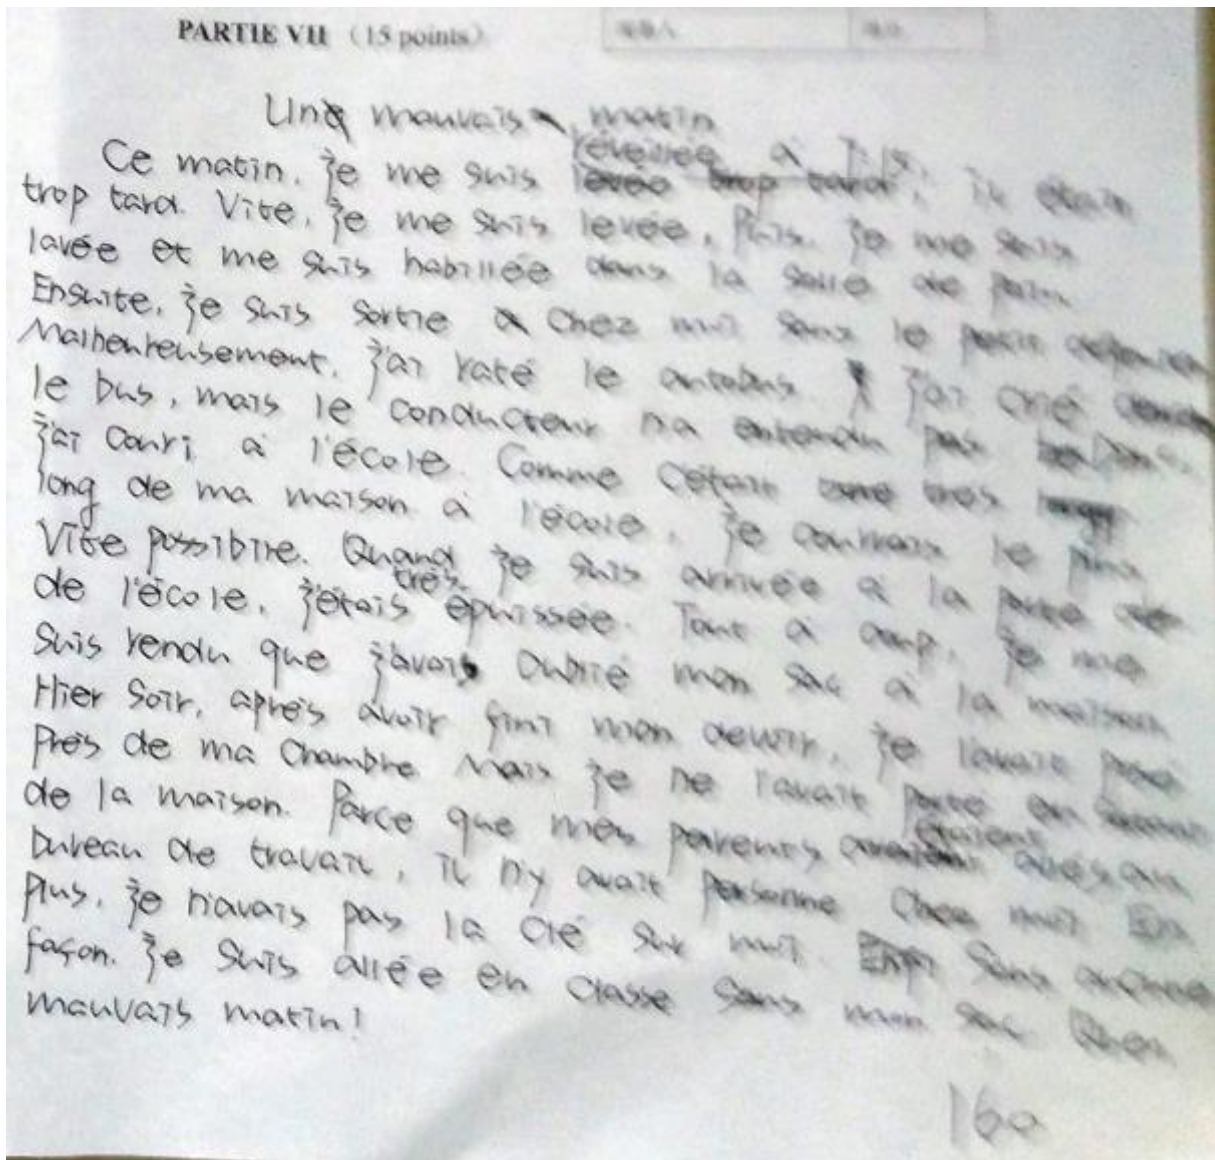 PARTIE VII (15 points)
Un mauvais matin
Ce matin, je me suis réveillée à 7:15, il était
trop tard. Vite, je me suis levée, Puis, je me suis
lavée et me suis habillée dans la salle de pain
Ensuite, je suis sortie chez moi sans le petit
Malheureusement, j'ai raté le autobus. j'ai crié
le bus, mais le conducteur n'a entendu pas
j'ai couri à l'école. Comme c'était très
long de ma maison à l'école, je courrais le plus
Vite possibile. Quand je suis arrivée à la porte de
de l'école, j'étais très épuissée. Tout à coup, je me
suis rendu que j'avais oublié mon sac à la maison
Hier soir, après avoir fini mon devoir, je l'avait posé
près de ma chambre Mais je ne l'avait porté en
de la maison. Parce que mes parents étaient allés au
bureau de travail, il n'y avait personne chez moi En
plus, je n'avais pas la clé sur moi. Sans aucune
façon. je suis allée en classe sans mon sac Quel
mauvais matin!
160